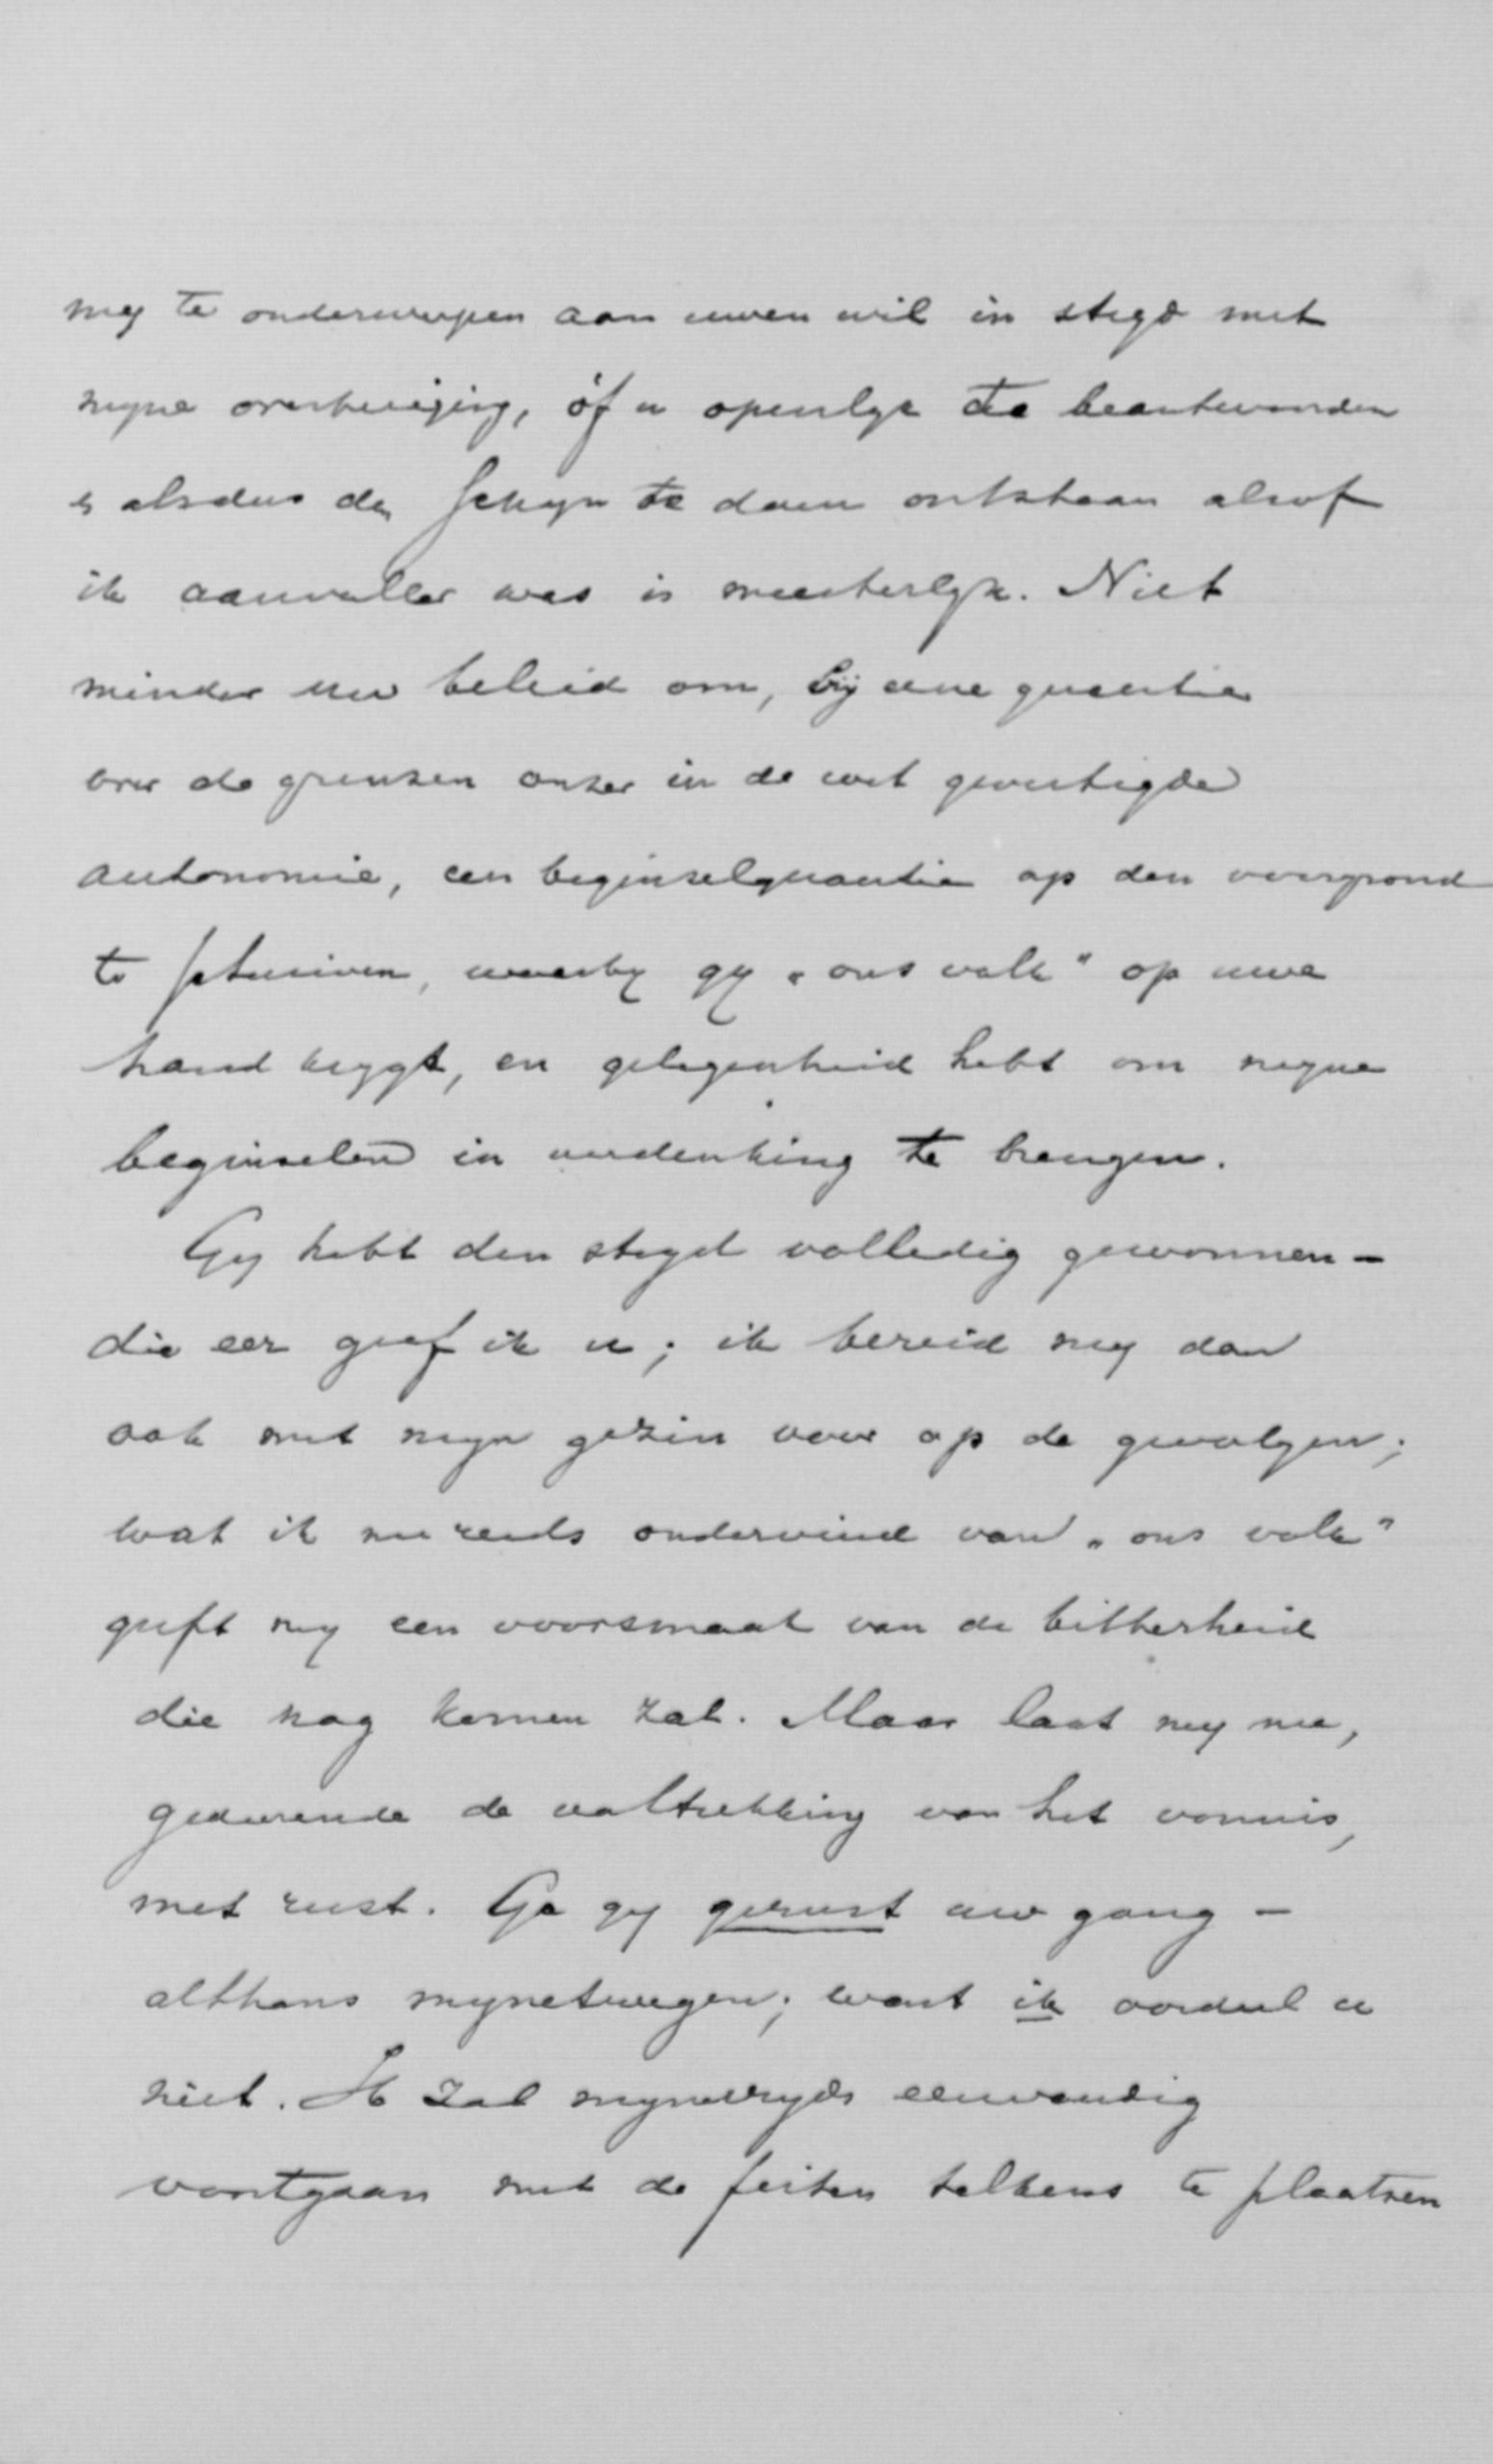 my te onderwerpen aan uwen wil in stryd met
myne overtuiging, óf u openlyk te beantwoorden
& alsdus den schyn te doen ontstaan alsof
ik aanvaller was is meesterlyk. Niet
minder uw beleid om, bij eene quaestie
over de grenzen onzer in de wet gevestigde
autonomie, een beginselquaestie op den voorgrond
te schuiven, waarby gy „ons volk" op uwe
hand krygt, en gelegenheid hebt om myne
beginselen in verdenking te brengen.
Gy hebt den stryd volledig gewonnen –
die eer geef ik u; ik bereid my dan
ook met myn gezin voor op de gevolgen;
wat ik nu reeds ondervind van „ons volk"
geeft my een voorsmaak van de bitterheid
die nog komen zal. Maar laat my nu,
gedurende de voltrekking van het vonnis,
met rust. Ga gy gerust uw gang –
althans mynetwegen; want ik oordeel u
niet. Ik zal mynerzyds eenvoudig
voortgaan met de feiten telkens te plaatsen